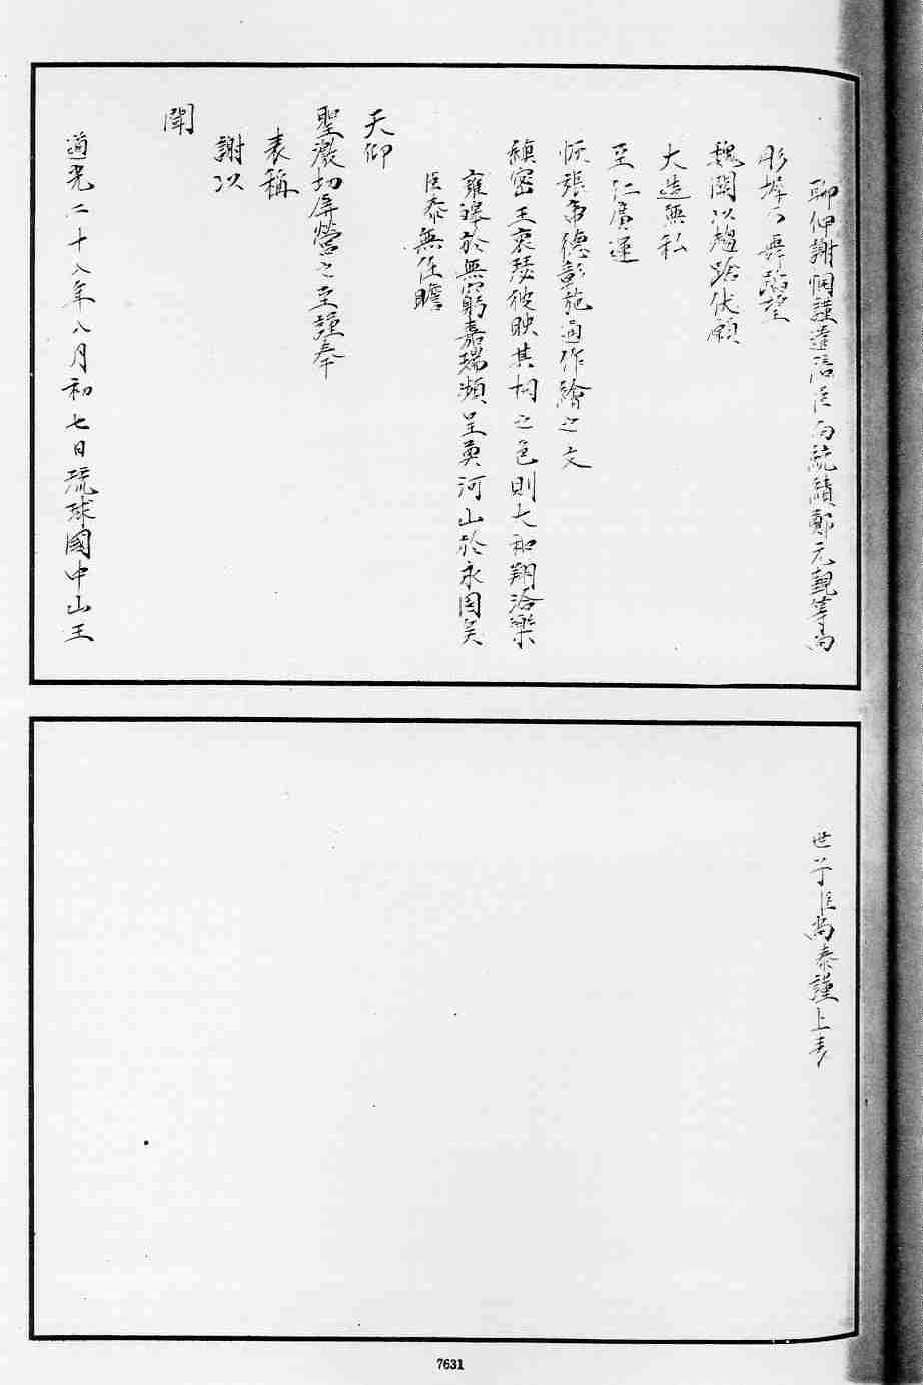 聊伸謝悃謹遣陪臣向統績鄭元觀等向
彤墀以舞蹈望
魏闕以趨蹌伏願
大造無私
至仁廣運
恢張帝德彰施通作繪之文
縝密王衷瑟彼映其柯之色則大和翔洽樂
雍皞於無窮嘉瑞頻呈奠河山於永固矣
臣泰無任瞻
天仰
聖激切屏營之至謹奉
表稱
謝以
聞
道光二十八年八月初七日琉球國中山王
世子臣尚泰謹上表
7631